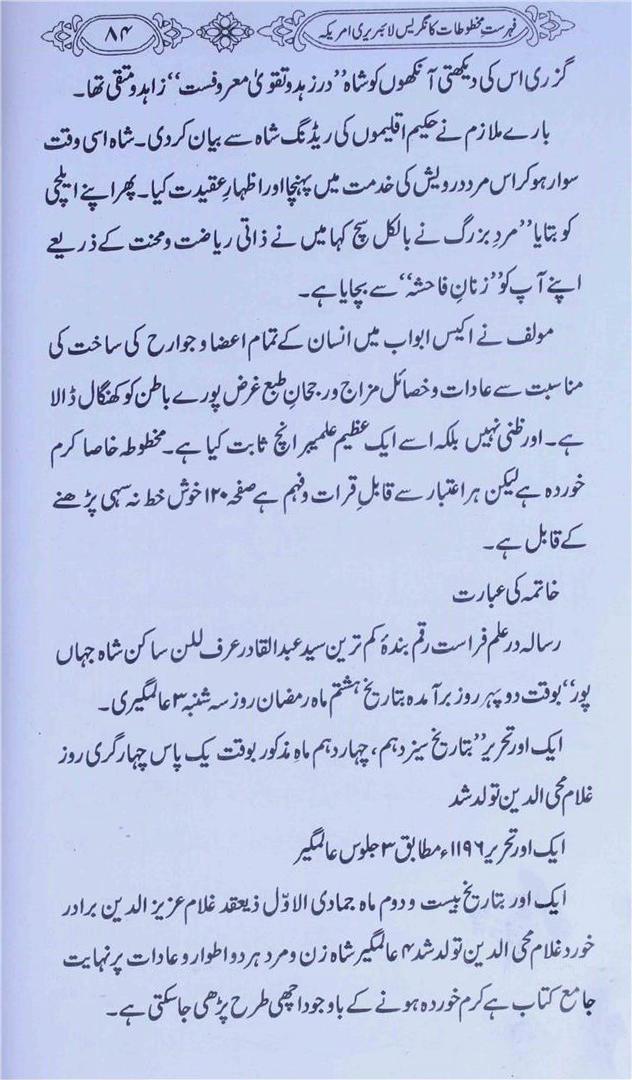 فہرستِ مخطوطات کانگریس لائبریری امریکہ
۸۴
گزری اس کی دیکھتی آنکھوں کو شاہ ”در زہد و تقویٰ معروفست“ زاہد و متقی تھا۔
بارے ملازم نے حکیم اقلیموں کی ریڈنگ شاہ سے بیان کردی۔ شاہ اسی وقت
سوار ہو کر اس مرد درویش کی خدمت میں پہنچا اور اظہارِ عقیدت کیا۔ پھر اپنے ایلچی
کو بتایا ”مردِ بزرگ نے بالکل سچ کہا میں نے ذاتی ریاضت و محنت کے ذریعے
اپنے آپ کو ”زنانِ فاحشہ“ سے بچایا ہے۔
مولف نے اکیس ابواب میں انسان کے تمام اعضا و جوارح کی ساخت کی
مناسبت سے عادات و خصائل مزاج ورجحانِ طبع غرض پورے باطن کو کھنگال ڈالا
ہے۔ اور ظنی نہیں بلکہ اسے ایک عظیم علمیبرانچ ثابت کیا ہے۔ مخطوطہ خاصا کرم
خوردہ ہے لیکن ہر اعتبار سے قابلِ قرات و فہم ہے صفحہ ۱۲۰ خوش خط نہ سہی پڑھنے
کے قابل ہے۔
خاتمہ کی عبارت
رسالہ در علم فراست رقم بندۂ کم ترین سید عبدالقادر عرف للن ساکن شاہ جہاں
پور“ بوقت دو پہر روز برآمدہ بتاریخ ہشتم ماہ رمضان روز سہ شنبہ ۳ عالمگیری۔
ایک اور تحریر ”بتاریخ سیزدہم، چہاردہم ماہِ مذکور بوقت یک پاس چہارگری روز
غلام محی الدین تولد شد
ایک اور تحریر ۱۱۹۶ء مطابق ۳ جلوس عالمگیر
ایک اور بتاریخ بیست و دوم ماہ جمادی الاوّل ذیعقد غلام عزیز الدین برادر
خورد غلام محی الدین تولد شد ۴ عالمگیر شاہ زن و مرد ہر دو اطوار و عادات پر نہایت
جامع کتاب ہے کرم خوردہ ہونے کے باوجود اچھی طرح پڑھی جاسکتی ہے۔